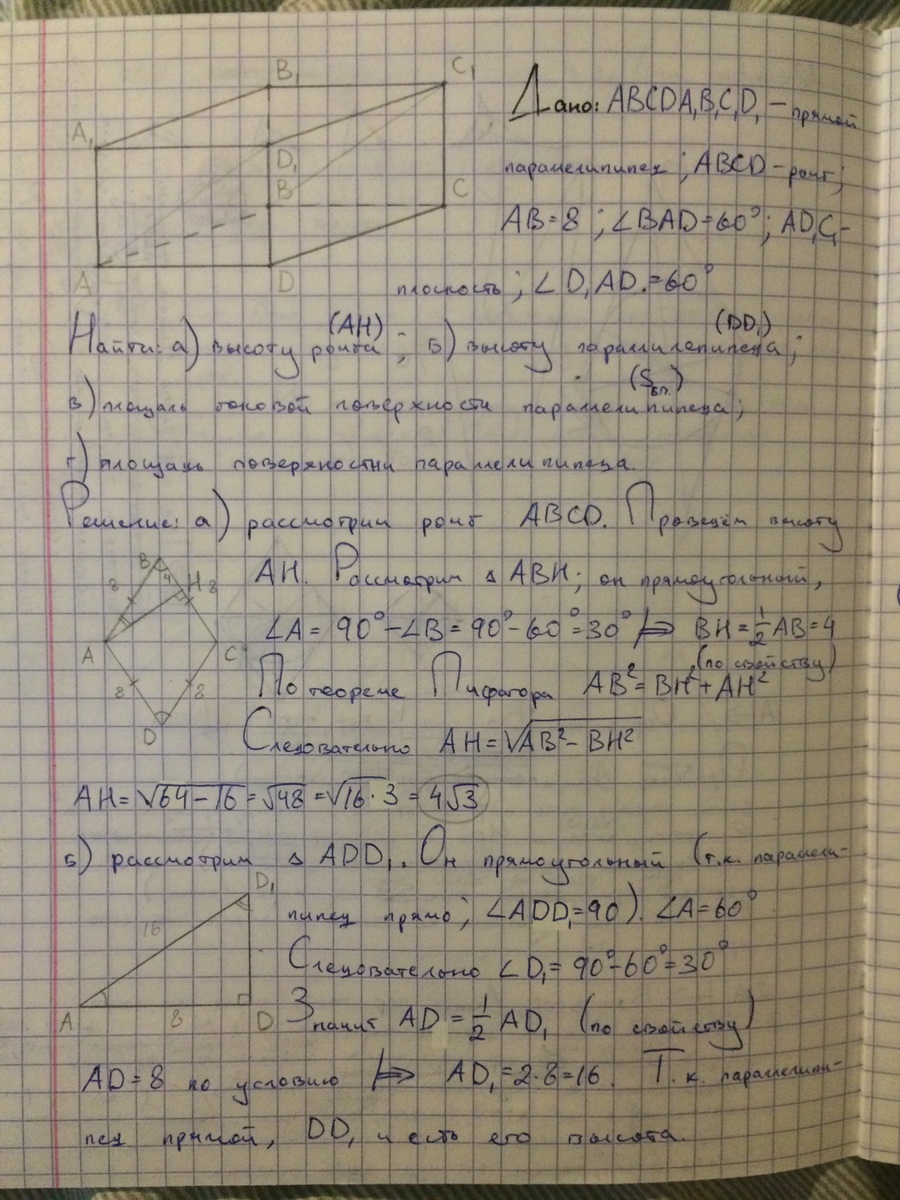 B₁ C₁
A₁ D₁
B C
A D
Дано: ABCDA₁B₁C₁D₁ – прямой
параллелипипед; ABCD – ромб;
AB=8; ∠BAD=60°; AD₁C₁–
плоскость; ∠D₁AD.=60°
Найти: а) высоту ромба (AH); б) высоту параллилепипеда (DD₁);
в) площадь боковой поверхности параллелипипеда (Sбп.);
г) площадь поверхностни параллелипипеда.
Решение: а) рассмотрим ромб ABCD. Проведём высоту
AH. Рассмотрим △ABH; он прямоугольный,
∠A = 90°-∠B = 90°-60°=30° ⇒ BH=½AB=4
(по свойству)
По теореме Пифагора AB²=BH²+AH²
Следовательно AH=√AB²-BH²
B 4 H 8
8
A C
8 8
D
AH=√64-16=√48=√16·3=4√3
б) рассмотрим △ADD₁. Он прямоугольный (т.к. параллели-
пипед прямо; ∠ADD₁=90). ∠A=60°
Следовательно ∠D₁= 90°-60°=30°
Значит AD=½AD₁ (по свойству)
D₁
16
A 8 D
AD=8 по условию ⇒ AD₁=2·8=16. Т.к. параллелипи-
пед прямой, DD₁ и есть его высота.